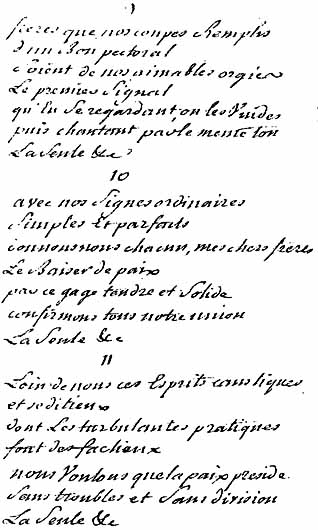 freres que nos coupes Remplis
d'un Bon pectoral
soient de nos aimables orgies
Le premier Signal
qu'En Se regardant, on les Vuides
puis chantons par le meme ton
La Seule &c
10
avec nos Signes ordinaires
Simples Et parfaits
donnons nous chacun, mes chers freres
Le Baiser de paix
par ce gage tendre et Solide
confirmons tous notre union
La Seule &c
11
Loin de nous ces Esprits caustiques
et seditieux
dont Les turbulantes pratiques
font des facheux
nous Voulons que la paix preside
Sans troubles et Sans division
La Seule &c